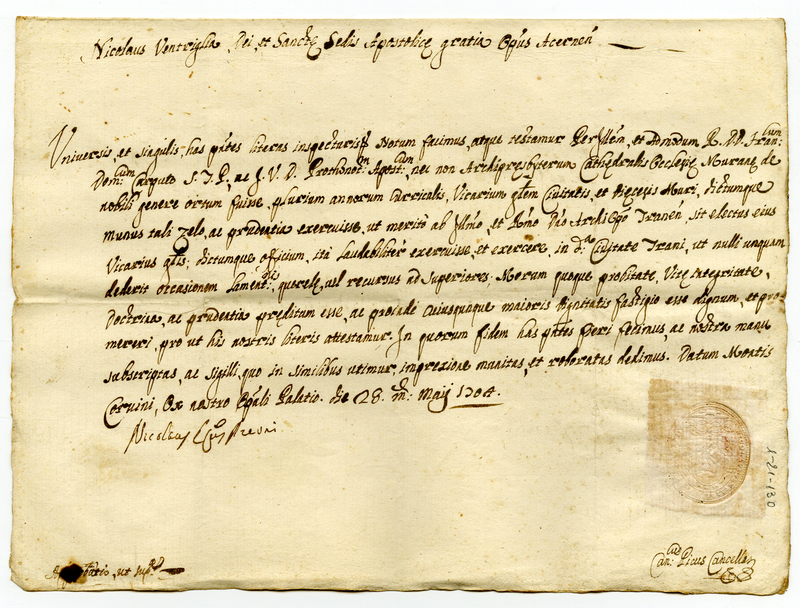 Nicolaus Ventriglia, Dei, et Sanctę Sedis Apostolicę gratia Epũs Acerneñ
Vniversis, et singulis has pñtes literas inspecturis Notum facimus, atque testamur Per Illẽm, et Admodum R. D. D. Fran:cum
Dom:cum Caputo S. T. P., ac J. V. D. Prothonot:m Apost:cum nec non Archipresbyterum Cathedralis Ecclesię Muranę de
nobili genere ortum fuisse, plurium annorum curriculis, Vicarium gñlem Civitatis, et Dięcesis Muri, dictumque
munus tali zelo, ac prudentia exercuisse, ut meritò ab Illmo, et Rmo Dño ArchiEpo Traneñ, sit electus eius
Vicarius gñlis; dictumque officium, ità laudabiliter exercuisse, et exercere, in d.ta Civitate Trani, ut nulli unquam
dederit occasionem lament:nis querelę, vel recursus ad superiores; Morum quoque probitate, Vitę integritate,
Doctrina, ac prudentia pręditum esse, ac proinde cuiusqunque maioris Dignitatis fastigio esse dignum, et pro-
mereri, pro ut his nostris literis attestamur. In quorum fidem has pñtes fieri fecimus, ac nostra manu
subscriptas, ac sigilli, quo in similibus utimur, impressione munitas, et roboratas dedimus. Datum Montis
Corvini, Ex nostro Epãli Palatio. die 28. m: Maij 1704.
Nicolaus Epũs
ut sup.a
Can:cus Picus Cancell.s
1-21-130